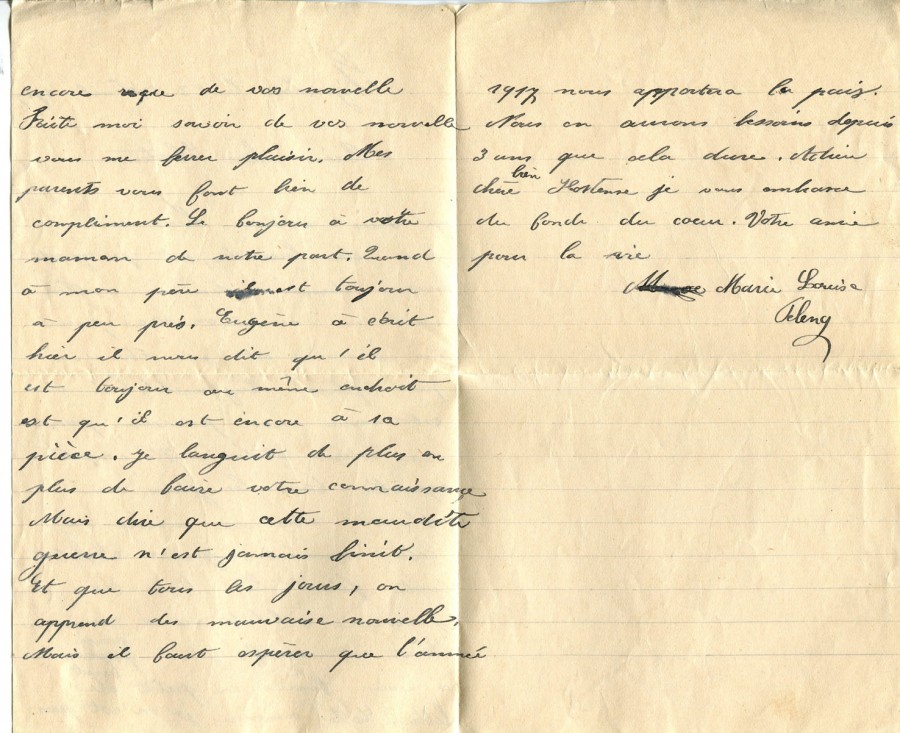 encore reçue de vos nouvelle
Faite moi savoir de vos nouvelle
vous me ferer plaisir. Mes
parents vous font bien de
compliment. Le bonjour à votre
maman de notre part. Quand
à mon père est toujour
à peu près. Eugène à écrit
hier il nous dit qu'il
est toujour au même endroit
est qu'il est encore à sa
pièce. Je languit de plus en
plus de faire votre connaissance
Mais dire que cette maudite
guerre n'est jamais finit.
Et que tous les jours, on
apprend des mauvaise nouvelle.
Mais il faut espèrer que l'année
1917 nous apportera la paix.
Nous en aurons bessoins depuis
3 ans que cela dure. Adieu
chère bien Hostense je vous embrasse
du fonds du cœur. Votre amie
pour la vie
Marie Louise